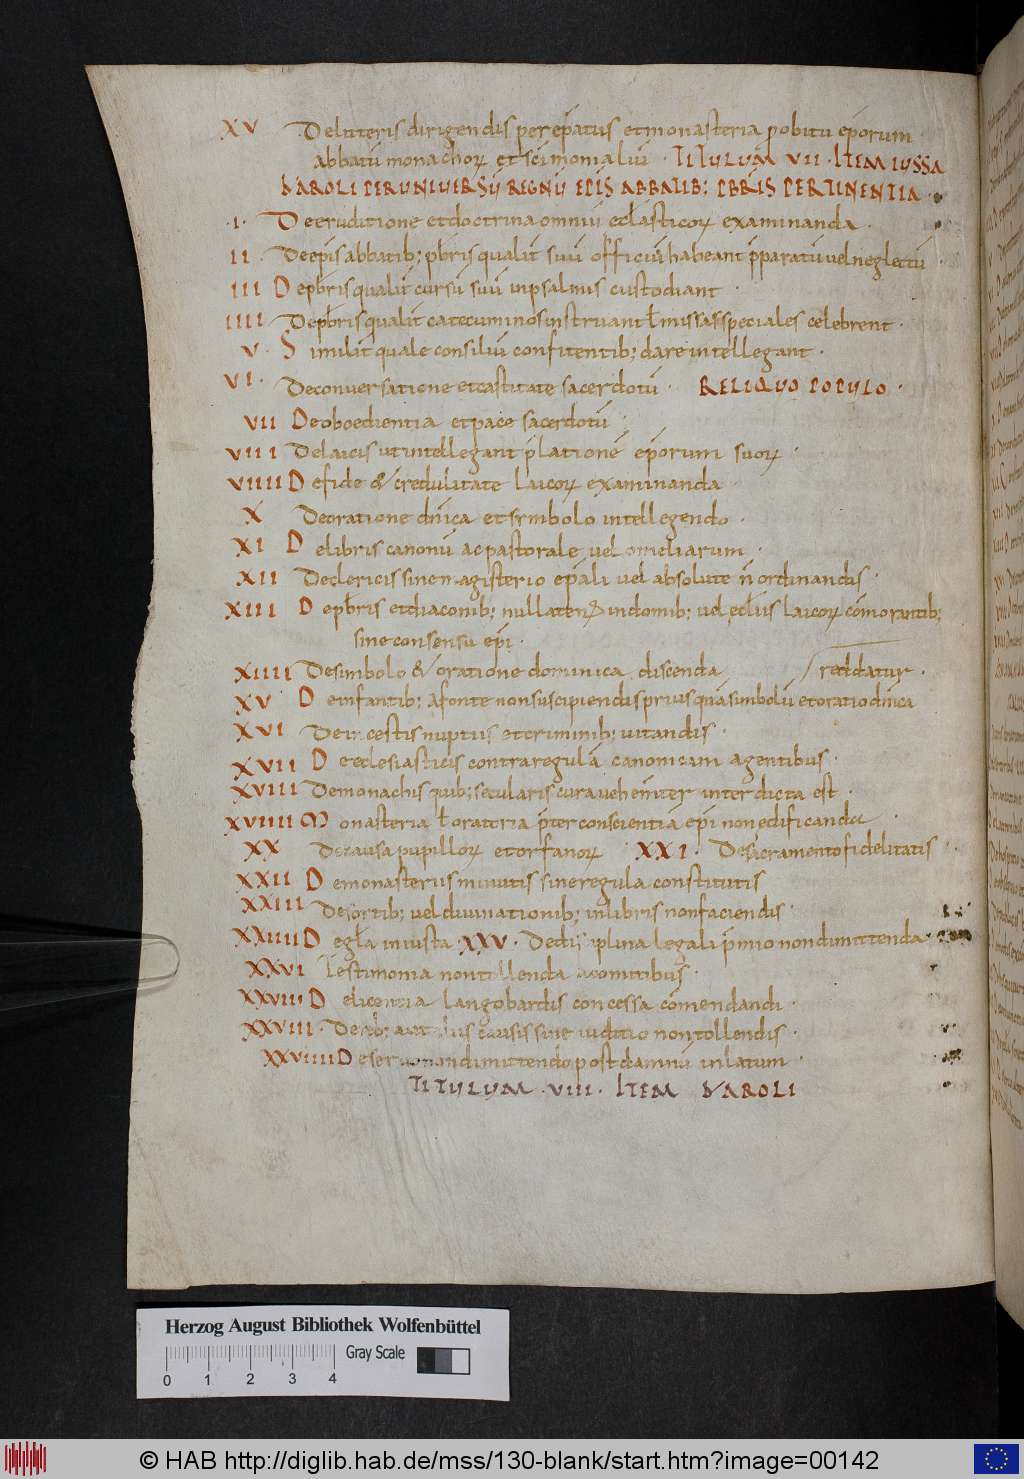 XV De litteris dirigendis per ep̄atus et monasteria p obitu ep̄orum
abbatū monachoꝝ et sc̄imonialiū · TITULUM VII · ITEM IUSSA
KAROLI PER UNIVERSŪ REGNŪ EP̄IS ABBATIB: PB̄RIS PERTINENTIA ·
I · De eruditione et doctrina omniū ecl̄asticoꝝ examinanda ·
II · De ep̄is abbatib; pb̄ris qualit̄ suū officiū habeant p̄paratū vel neglectū
III De pb̄ris qualit̄ cursū suū in psalmis custodiant ·
IIII De pb̄ris qualit̄ catecuminos instruant ł missas speciales celebrent ·
V · Similit̄ quale consiliū confitentib; dare intellegant ·
VI · De conversatione et castitate sacerdotū · RELIQUO POPULO ·
VII De oboedientia et pace sacerdotū ·
VIII De laicis ut intellegant p̄latione ep̄orum suoꝝ ·
VIIII De fide & credulitate laicoꝝ examinanda
X De oratione dn̄ica et symbolo intellegendo ·
XI De libris canonū ac pastorale vel omeliarum ·
XII De clericis sine magisterio ep̄ali vel absolute n̄ ordinandis ·
XIII De pb̄ris et diaconib; nullaten in domib; vel ecl̄iis laicoꝝ cōmorantib;
sine consensu ep̄i ·
XIIII De simbolo & oratione dominica discenda / reddatur ·
XV De infantib; a fonte non suscipiendis prius quā simbolū et oratio dn̄ica
XVI De incestis nuptiis et criminib; vitandis ·
XVII De ecclesiasticis contra regulā canonicam agentibus ·
XVIII De monachis quib; secularis cura vehemt̄er interdicta est ·
XVIIII Monasteria ł oratoria p̄ter conscientia ep̄i non edificanda ·
XX De causa pupilloꝝ et orfanoꝝ XXI · De sacramento fidelitatis
XXII De monasteriis minutis sine regula constitutis
XXIII De sortib; vel divinationib; in libris non faciendis ·
XXIIII De regl̄a iniusta · XXV · De disciplina legali p̄mio non dimittenda
XXVI Testimonia non tollenda a comitibus ·
XXVIII De licentia langobardis concessa cōmendandi ·
XXVIII · De causis sine iuditio non tollendis ·
XXVIIII De dimittendo post damnū inlatum ·
TITULUM · VIII · ITEM KAROLI
Herzog August Bibliothek Wolfenbüttel
Gray Scale
0 1 2 3 4
© HAB http://diglib.hab.de/mss/130-blank/start.htm?image=00142